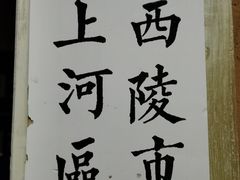 西陵市
上河區